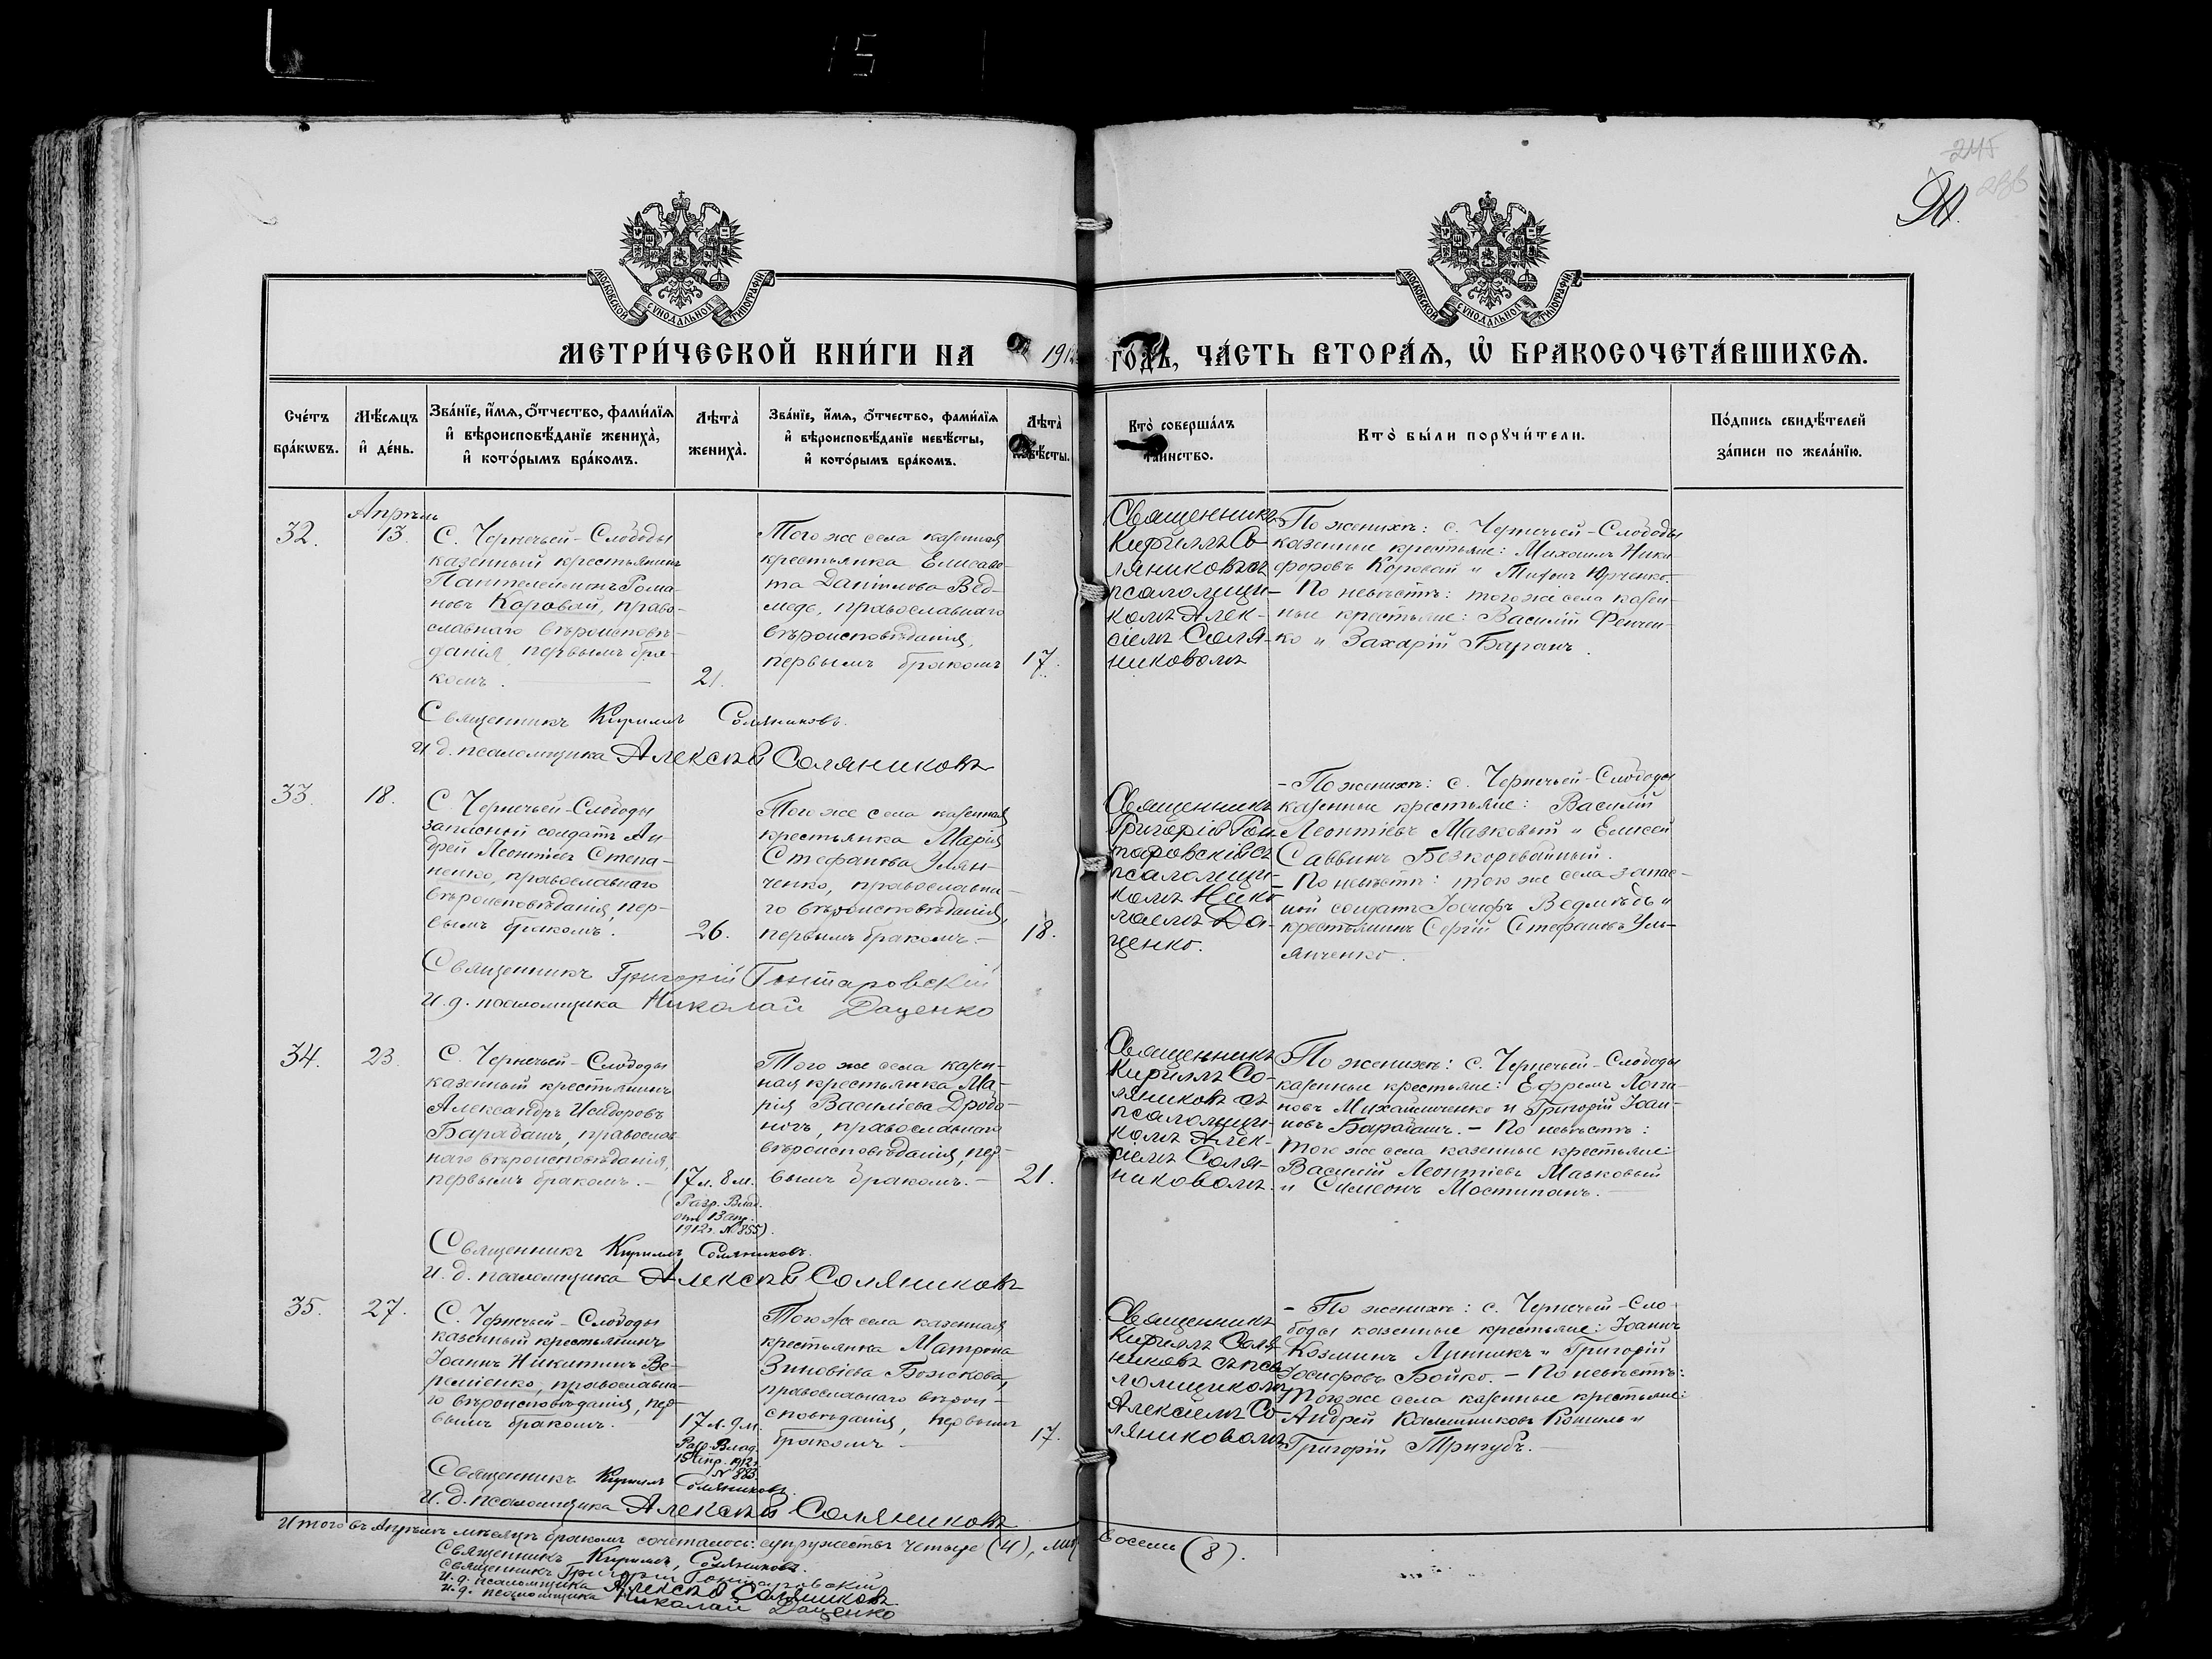 15
МОСКОВСКОЙ СУНОДАЛЬНОЙ ТИПОГРАФІИ
МОСКОВСКОЙ СУНОДАЛЬНОЙ ТИПОГРАФІИ
МЕТРИ́ЧЕСКОЙ КНИ́ГИ НА 1912 ГО́ДЪ, ЧА́СТЬ ВТОРА́Ѧ, Ѽ БРАКОСОЧЕТА́ВШИХСѦ.
Сче́тъ бра́кωвъ.
Мѣ́сяцъ и҆ де́нь.
Зва́нїе, и҆́мѧ, ѻ҆́тчество, фами́лїѧ и҆ вѣроисповѣ́данїе жениха̀, и҆ кото́рымъ бра́комъ.
Лѣта̀ жениха̀.
Зва́нїе, и҆́мѧ, ѻ҆́тчество, фами́лїѧ и҆ вѣроисповѣ́данїе невѣ́сты, и҆ кото́рымъ бра́комъ.
Лѣта̀ невѣ́сты.
Кто̀ соверша́лъ та́инство.
Кто̀ бы́ли порꙋчи́тели.
По́дпись свидѣ́телей за́писи по жела́нїю.
Апрѣль
32.
13.
С. Чернечьей-Слободы
казенный крестьянинъ
Пантелеймонъ Рома-
новъ Коровай, право-
славнаго вѣроисповѣ-
данія, первымъ бра-
комъ.
21.
Того же села казенная
крестьянка Елисаве-
та Даніилова Вед-
медь, православнаго
вѣроисповѣданія,
первымъ бракомъ
17.
Священникъ
Кириллъ Со-
ляниковъ съ
псаломщи-
комъ Алек-
сіемъ Соля-
никовомъ
По женихѣ: с. Чернечьей-Слободы
казенные крестьяне: Михаилъ Ники-
форовъ Коровай и Тихонъ Юрченко.
- По невѣстѣ: того же села казен-
ные крестьяне: Василій Фенчен-
ко и Захарій Баранъ.
Священникъ Кириллъ Соляниковъ.
и. д. псаломщика Алексѣй Соляниковъ
33.
18.
С. Чернечьей-Слободы
запасной солдатъ Ан-
дрей Леонтіевъ Степа-
ненко, православнаго
вѣроисповѣданія, пер-
вымъ бракомъ.
26.
Того же села казенная
крестьянка Марія
Стефанова Улян-
ченко, православна-
го вѣроисповѣданія,
первымъ бракомъ.-
18.
Священникъ
Григорій Гон-
таровскій съ
псаломщи-
комъ Нико-
лаемъ Да-
ценко.
- По женихѣ: с. Чернечьей-Слободы
казенные крестьяне: Василій
Леонтіевъ Мазковый и Елисей
Саввинъ Безкоровайный.
- По невѣстѣ: того же села запас-
ной солдатъ Іосифъ Ведмѣдь и
крестьянинъ Сергій Стефановъ Уль-
янченко.
Священникъ Григорій Гонтаровскій
И. д. псаломщика Николай Даценко
34.
23.
С. Чернечьей-Слободы
казенный крестьянинъ
Александръ Исидоровъ
Барабашъ, православ-
наго вѣроисповѣданія,
первымъ бракомъ.-
17 л. 8 м.
(Разр. Влад.
отъ 13 апр.
1912 г. № 855).
Того же села казен-
ная крестьянка Ма-
рія Василіева Дробо-
ногъ, православнаго
вѣроисповѣданія, пер-
вымъ бракомъ.-
21.
Священникъ
Кириллъ Со-
ляниковъ съ
псаломщи-
комъ Алек-
сіемъ Соля-
никовомъ.
По женихѣ: с. Чернечьей-Слободы
казенные крестьяне: Ефремъ Логи-
новъ Михайличенко и Григорій Іоан-
новъ Барабашъ. - По невѣстѣ:
того же села казенные крестьяне:
Василій Леонтіевъ Мазковый
и Симеонъ Мостипанъ.
Священникъ Кириллъ Соляниковъ.
И. д. псаломщика Алексѣй Соляниковъ
35.
27.
С. Чернечьей-Слободы
казенный крестьянинъ
Іоаннъ Никитинъ Ве-
реміенко, православна-
го вѣроисповѣданія, пер-
вымъ бракомъ.
17 л. 9 м.
Разр. Влад.
15 Апр. 1912 г.
№ 883.
Того же села казенная
крестьянка Матрона
Зиновіева Божкова,
православнаго вѣрои-
сповѣданія, первымъ
бракомъ.
17.
Священникъ
Кириллъ Соля-
никовъ съ пса-
ломщикомъ
Алексіемъ Со-
ляниковомъ
- По женихѣ: с. Чернечьей-Сло-
боды казенные крестьяне: Іоаннъ
Козминъ Линникъ и Григорій
Іосифовъ Бойко. - По невѣстѣ:
того же села казенные крестьяне:
Андрей Калинниковъ Кошиль и
Григорій Тригубъ.-
Священникъ Кириллъ Соляниковъ.
И. д. псаломщика Алексѣй Соляниковъ
Итого въ Апрѣлѣ мѣсяцѣ бракомъ сочеталось: супружествъ четыре (4), лицъ восемь (8).
Священникъ Кириллъ Соляниковъ.
Священникъ Григорій Гонтаровскій
И. д. псаломщика Алексѣй Соляниковъ
И. д. псаломщика Николай Даценко